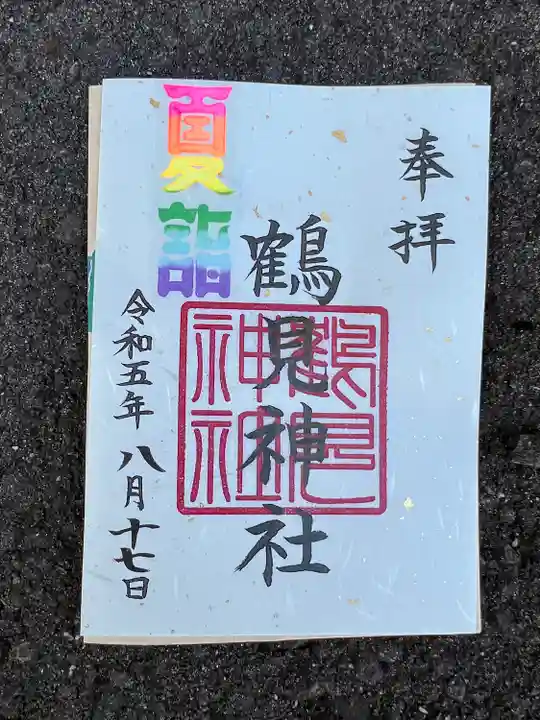 奉拝
鶴見神社
鶴見神社
夏詣
令和五年八月十七日